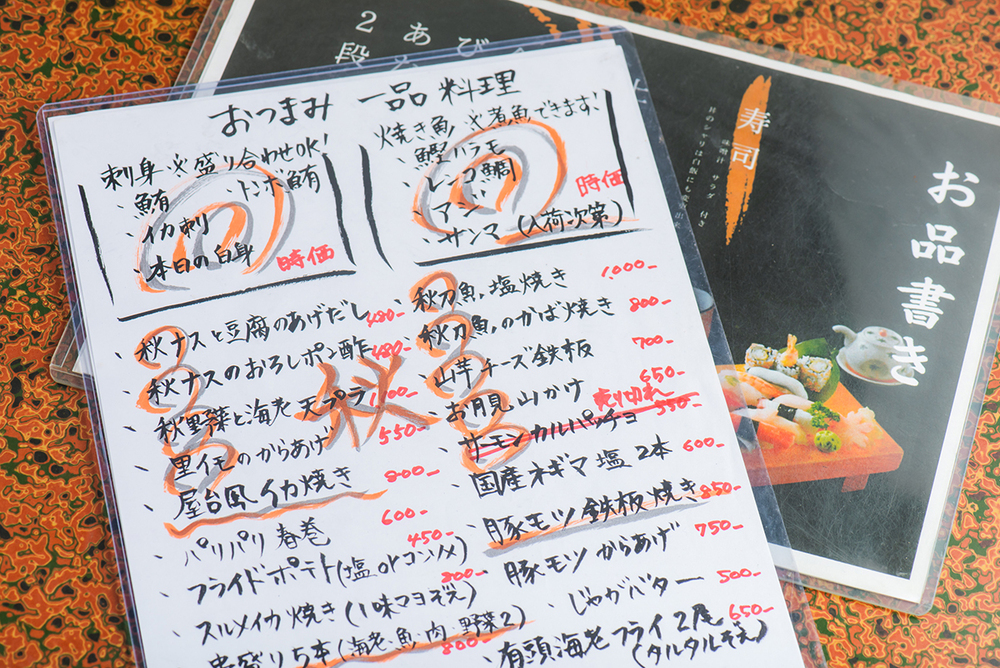 おつまみ 一品料理
刺身 ※盛り合わせOK!
・鮪 ・トンボ鮪
・イカ刺
・本日の白身 時価
焼き魚 ※煮魚できます!
・鰹ハラモ
・レンコ鯛
・アジ 時価
・サンマ (入荷次第)
秋
、秋ナスと豆腐のあげだし 480-
、秋ナスのおろしポン酢 480-
、秋野菜と海老天プラ
、里イモのからあげ 550-
、屋台風イカ焼き 800-
、パリパリ春巻 600-
、フライドポテト(塩orコンソメ) 450-
、スルメイカ焼き(1味マヨぞえ) 800-
盛り5本(海老・魚・肉・野菜2) 800-
、秋刀魚、塩焼き 1,000-
、秋刀魚のかば焼き 800-
、山芋チーズ鉄板 700-
、お月見山かけ 650-
、サーモンカルパッチョ 売り切れ 550-
、国産ネギマ塩2本 600-
、豚モツ鉄板焼き 850-
、豚モツからあげ 750-
、じゃがバター 500-
、有頭海老フライ2尾 650-
(タルタルぞえ)
お品書き
寿司
味噌汁 サラダ 付き
2段